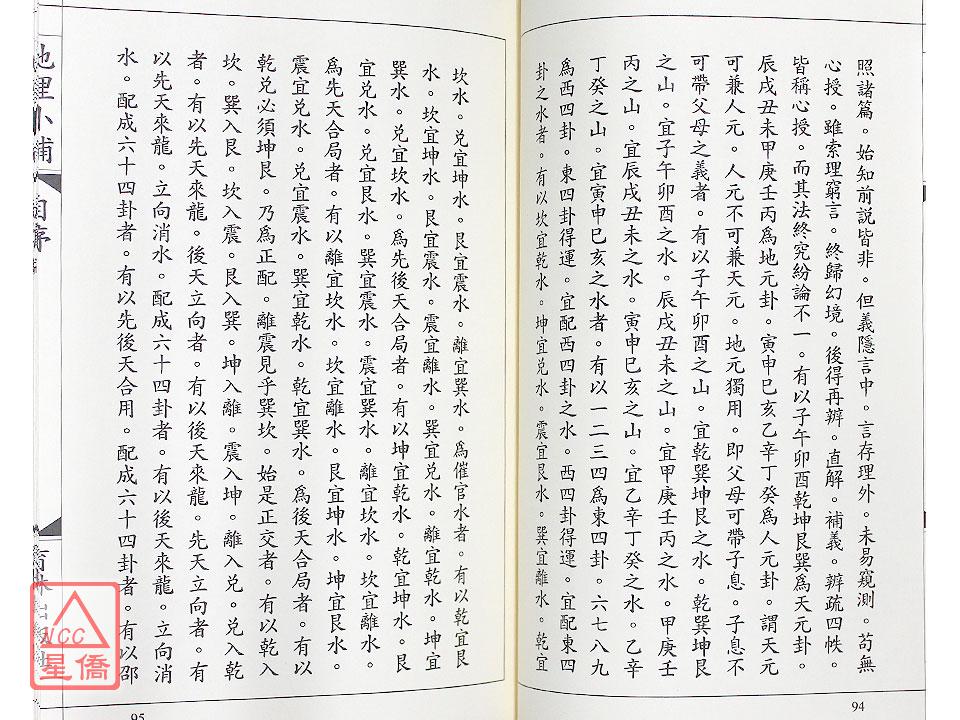 照諸篇。始知前説皆非。但義隱言中。言存理外。未易窺測。苟無
心授。雖索理窮言。終歸幻境。後得再辨。直解。補義。辨疏四帙。
皆稱心授。而其法終究紛論不一。有以子午卯酉乾坤艮巽為天元卦。
辰戌丑未甲庚壬丙為地元卦。寅申巳亥乙辛丁癸為人元卦。謂天元
可兼人元。人元不可兼天元。地元獨用。即父母可帶子息。子息不
可帶父母之義者。有以子午卯酉之山。宜乾巽坤艮之水。乾巽坤艮
之山。宜子午卯酉之水。辰戌丑未之山。宜甲庚壬丙之水。甲庚壬
丙之山。宜辰戌丑未之水。寅申巳亥之山。宜乙辛丁癸之水。乙辛
丁癸之山。宜寅申巳亥之水者。有以一二三四為東四卦。六七八九
為西四卦。東四卦得運。宜配西四卦之水。西四卦得運。宜配東四
卦之水者。有以坎宜乾水。坤宜兌水。震宜艮水。巽宜離水。乾宜
94
坎水。兌宜坤水。艮宜震水。離宜巽水。為催官水者。有以乾宜艮
水。坎宜坤水。艮宜震水。震宜離水。巽宜兌水。離宜乾水。坤宜
巽水。兌宜坎水。為先後天合局者。有以坤宜乾水。乾宜坤水。艮
宜兌水。兌宜艮水。巽宜震水。震宜巽水。離宜坎水。坎宜離水。
為先天合局者。有以離宜坎水。坎宜離水。艮宜坤水。坤宜艮水。
震宜兌水。兌宜震水。巽宜乾水。乾宜巽水。為後天合局者。有以
乾兌必須坤艮。乃為正配。離震見乎巽坎。始是正交者。有以乾入
坎。巽入艮。坎入震。艮入巽。坤入離。震入坤。離入兌。兌入乾
者。有以先天來龍。後天立向者。有以後天來龍。先天立向者。有
以先天來龍。立向消水。配成六十四卦者。有以後天來龍。立向消
水。配成六十四卦者。有以先後天合用。配成六十四卦者。有以邵
95
地理小補
自序
NCC
星僑